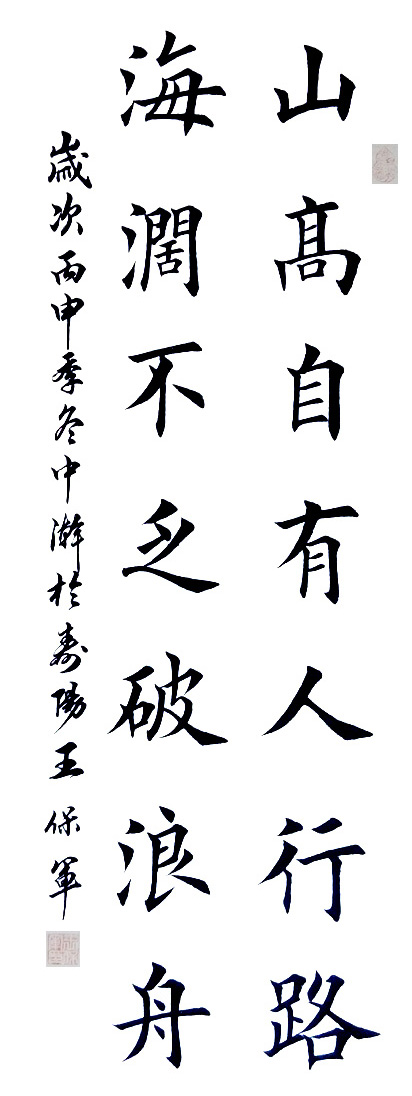 山高自有人行路
海濶不乏破浪舟
歲次丙申季冬中澣於壽陽王保軍